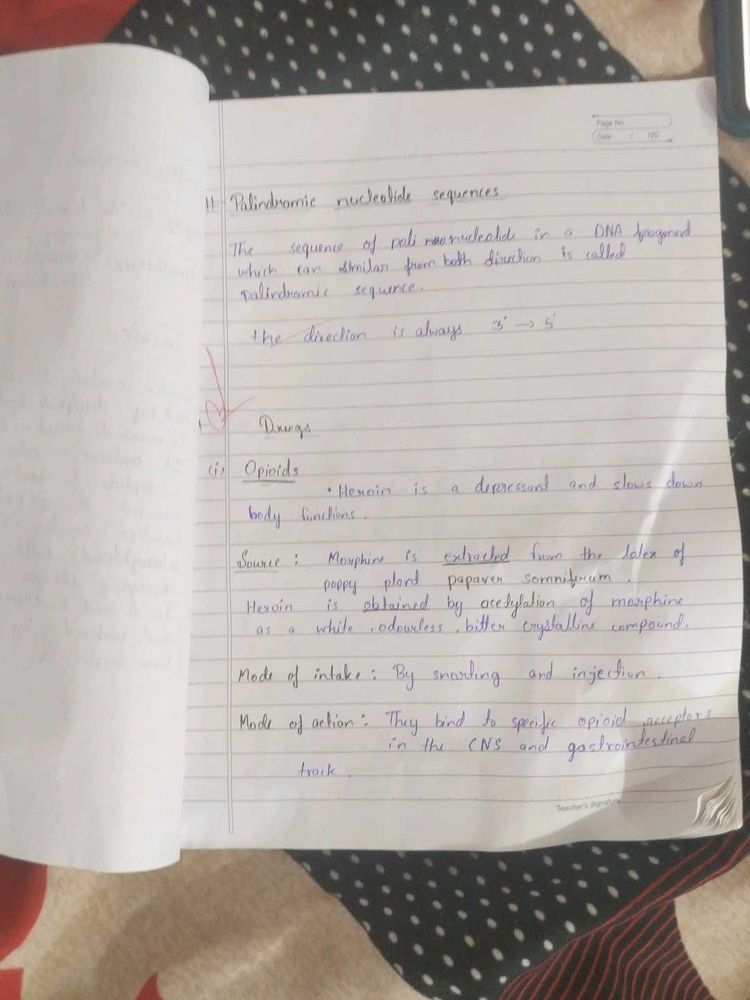 Page No.
Date / /20
1) Palindromic nucleotide sequences
The sequence of pali nucleotide in a DNA fragment
which can similar from both direction is called
palindromic sequence.
The direction is always 3' → 5'
Drugs
(i) Opioids
• Heroin is a depressant and slows down
body functions.
Source : Morphine is extracted from the latex of
poppy plant papaver somniferum .
Heroin is obtained by acetylation of morphine
as a white , odourless , bitter crystalline compound.
Mode of intake : By snorting and injection .
Mode of action : They bind to specific opioid receptors
in the CNS and gastrointestinal
track .
Teacher's Signature